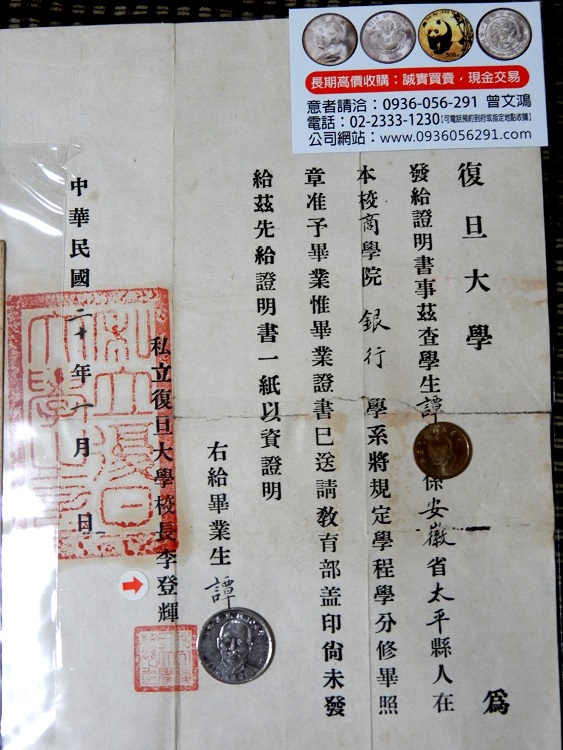 長期高價收購：誠實買賣，現金交易
意者請洽：0936-056-291 曾文鴻
電話：02-2333-1230【可電話預約到府或指定地點收購】
公司網站：www.0936056291.com
復旦大學　為
發給證明書事茲查學生譚　係安徽省太平縣人在
本校商學院銀行學系將規定學程學分修畢照
章准予畢業惟畢業證書已送請教育部盖印尙未發
給茲先給證明書一紙以資證明
右給畢業生譚
私立復旦大學校長李登輝
中華民國二十年　月　日
私立復旦大學之